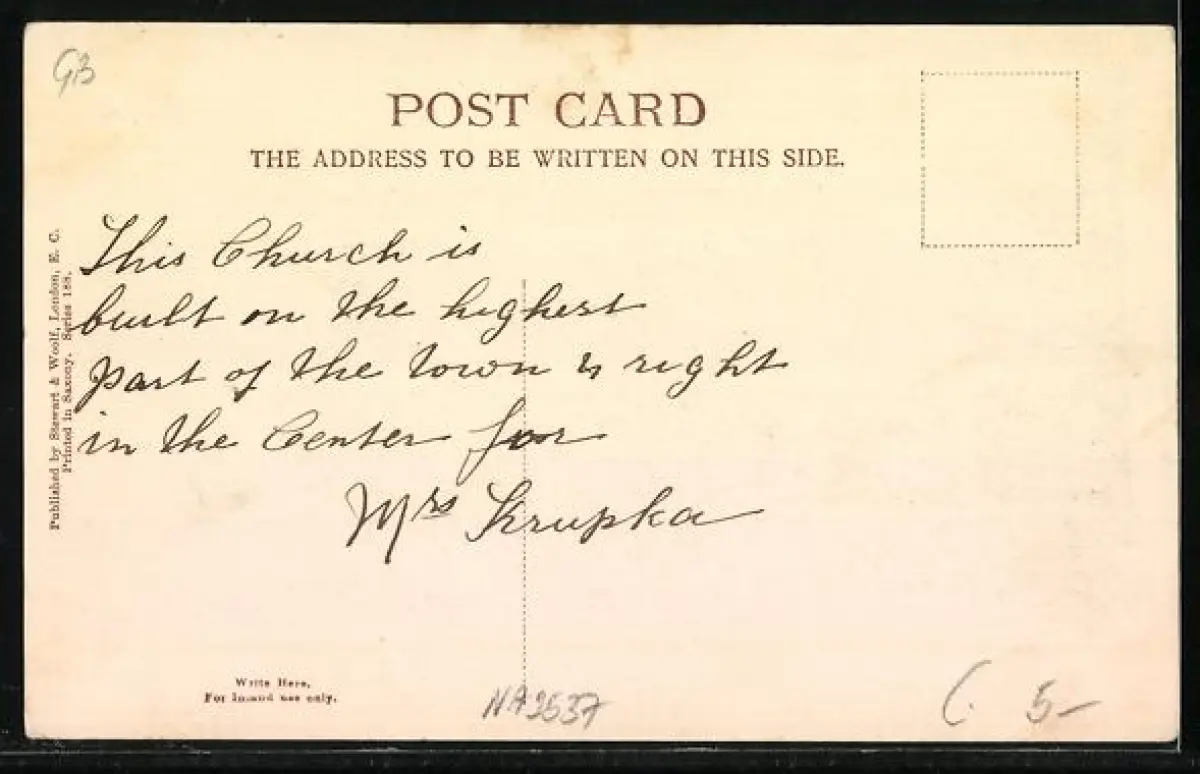 GB
POST CARD
THE ADDRESS TO BE WRITTEN ON THIS SIDE.
Published by Stewart & Woolf, London, E. C.
Printed in Saxony. Series 188.
This Church is
built on the highest
part of the town & right
in the Center for
Mrs Krupka
Write Here,
For Inland use only.
NA2537
5-